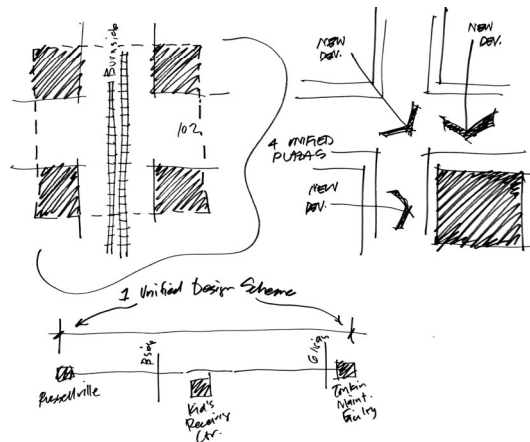 Burnside
102
NEW
DEV.
NEW
DEV.
4 UNIFIED
PLAZAS
NEW
DEV.
1 Unified Design Scheme
Bside
Glisan
Russellville
Kid's
Receiving
Ctr.
Maint.
Facility